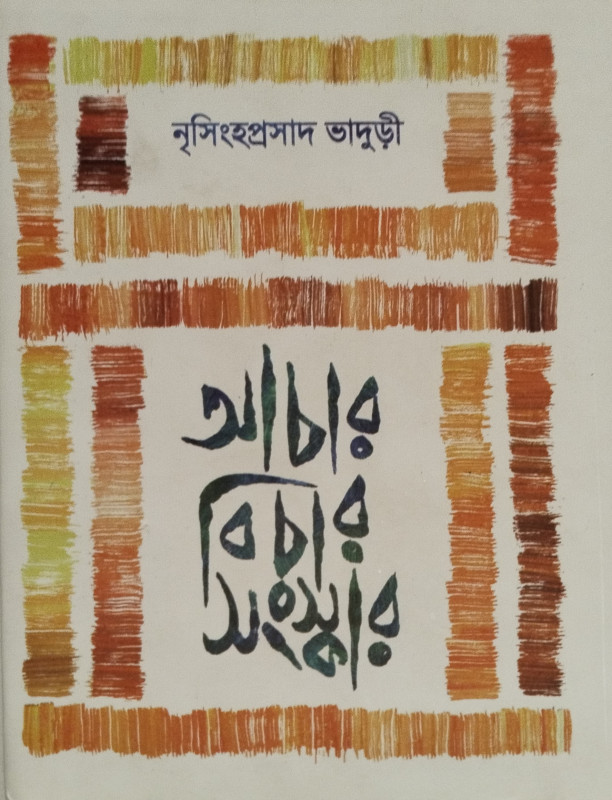 নৃসিংহপ্রসাদ ভাদুড়ী
আচার
বিচার
সংস্কার